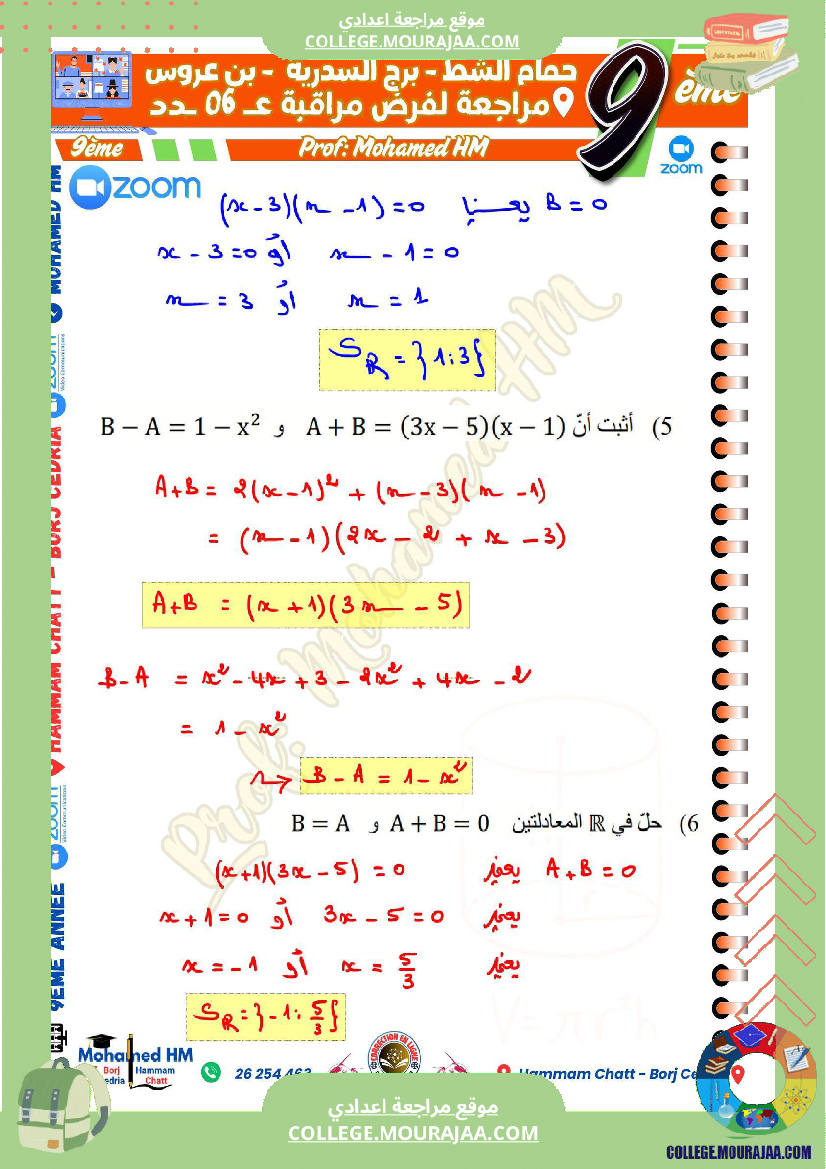 موقع مراجعة اعدادي
COLLEGE.MOURAJAA.COM
حمام الشط - برج السدرية - بن عروس
مراجعة لفرض مراقبة عـ 06 ـدد
9 ème
9ème
Prof: Mohamed HM
zoom
zoom
(x - 3)(x - 1) = 0 يعنيا B = 0
x - 3 = 0 أو x - 1 = 0
x = 3 أو x = 1
S_ℝ = {1; 3}
5) أثبت أنّ A + B = (3x − 5)(x − 1) و B − A = 1 − x²
A+B = 2(x-1)² + (x-3)(x-1)
= (x-1)(2x - 2 + x - 3)
A+B = (x+1)(3x - 5)
B-A = x² - 4x + 3 - 2x² + 4x - 2
= 1 - x²
↝ B - A = 1 - x²
6) حلّ في ℝ المعادلتين A + B = 0 و B = A
(x+1)(3x-5) = 0 يعني A+B = 0
x+1 = 0 أو 3x - 5 = 0 يعني
x = -1 أو x = 5/3 يعني
S_ℝ = {-1; 5/3}
Prof: Mohamed HM
V = πr²h
9EME ANNEE
zoom
Video Communications
HAMMAM CHATT - BORJ CEDRIA
zoom
Video Communications
MOHAMED HM
Mohamed HM
Borj Hammam
Chatt
CORRECTION EN LIGNE
Hammam Chatt - Borj Ce
موقع مراجعة اعدادي
COLLEGE.MOURAJAA.COM
COLLEGE.MOURAJAA.COM